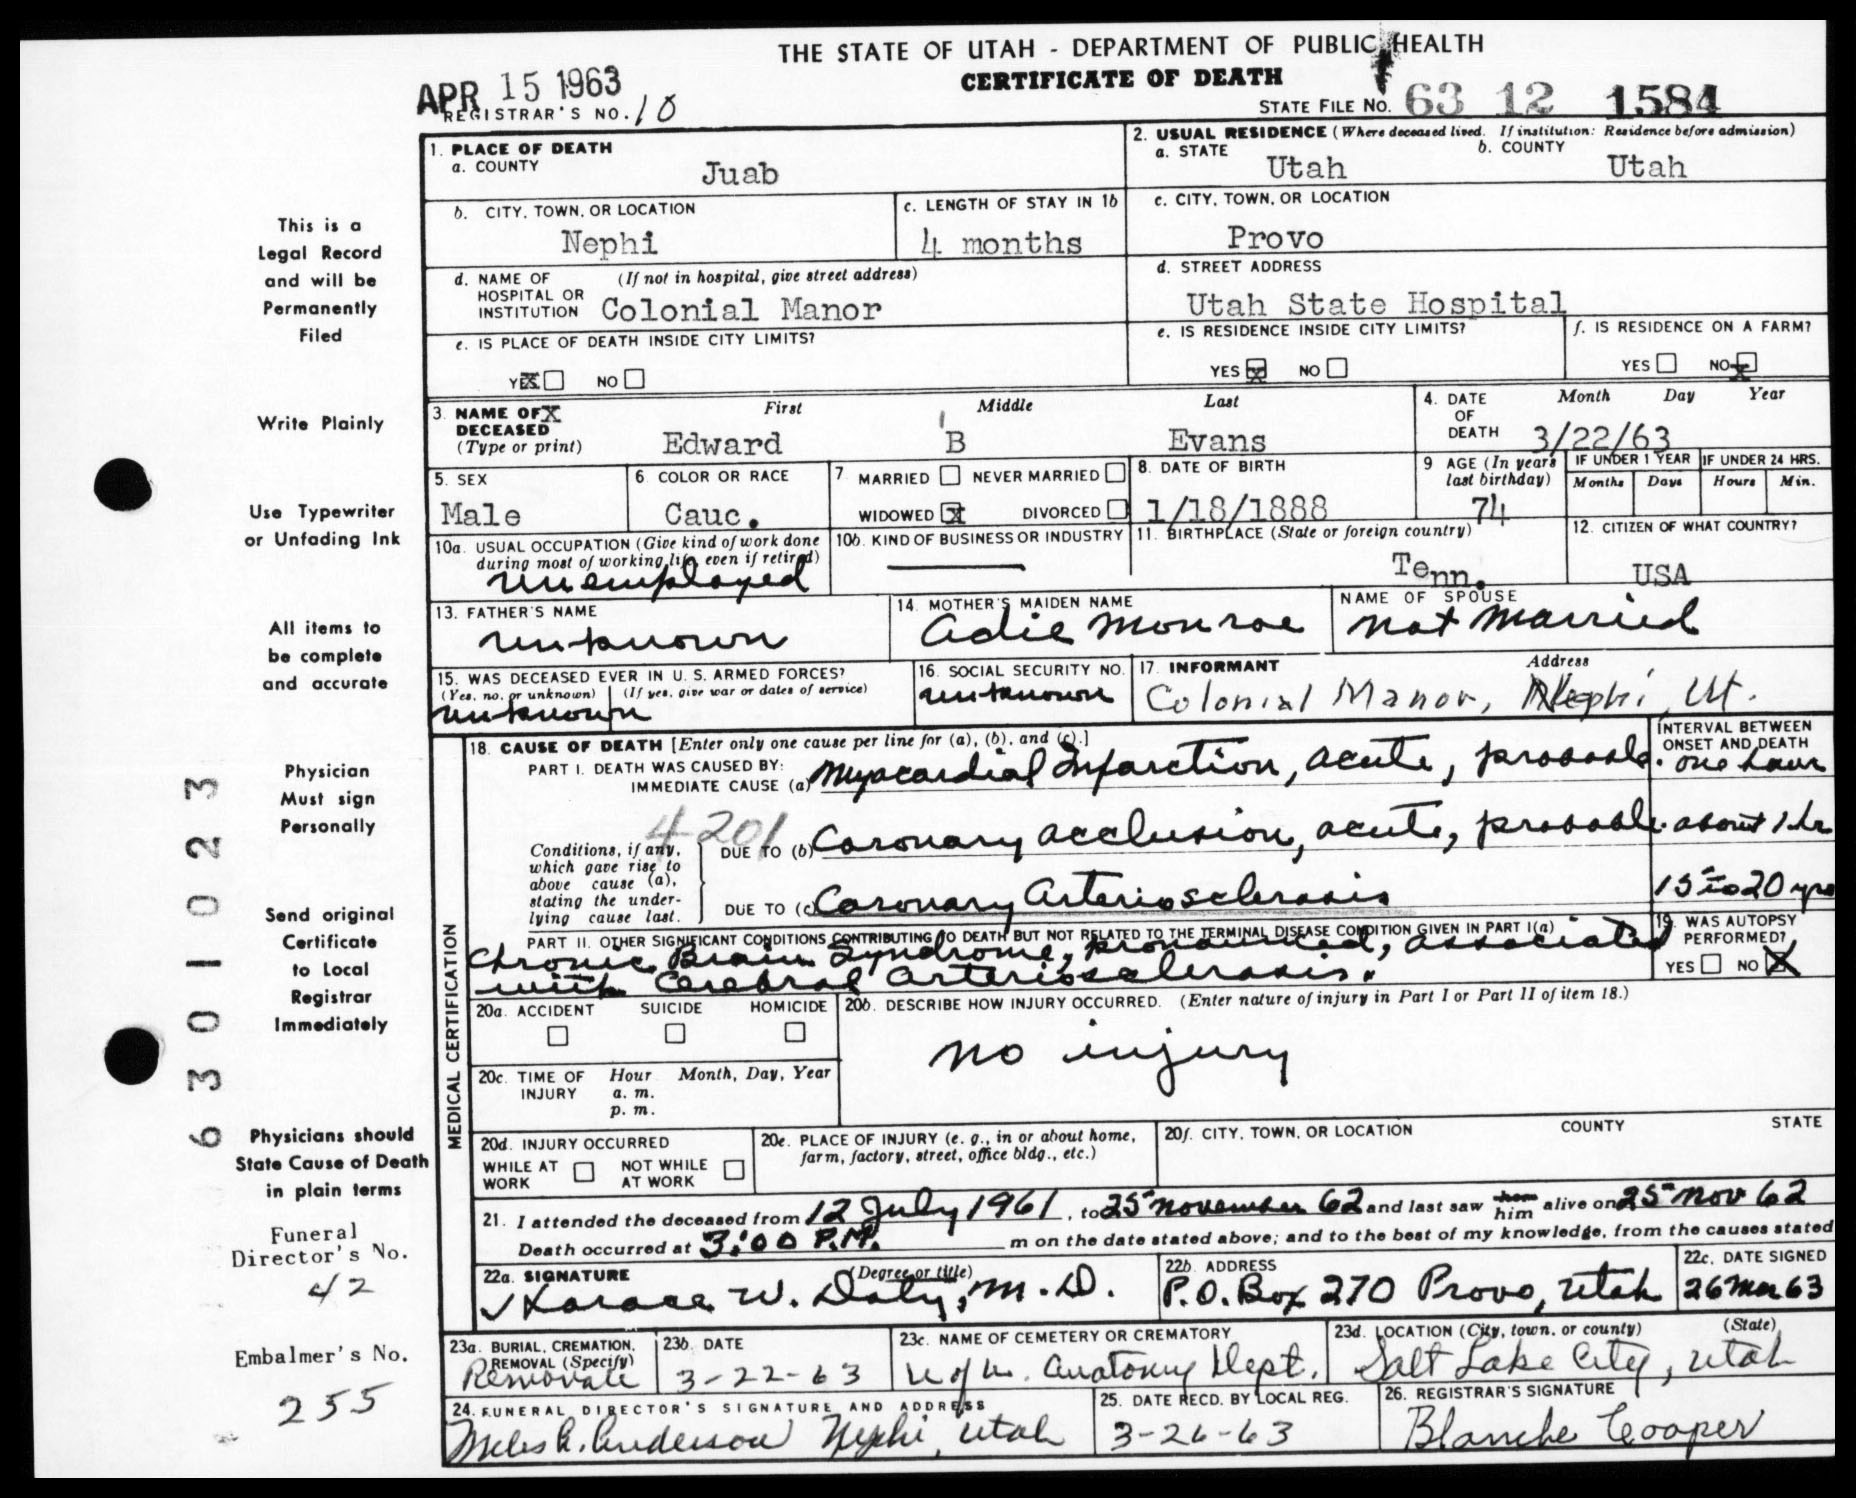 THE STATE OF UTAH - DEPARTMENT OF PUBLIC HEALTH
CERTIFICATE OF DEATH
APR 15 1963
REGISTRAR'S NO. 10
STATE FILE NO. 63 12 1584
1. PLACE OF DEATH
a. COUNTY
Juab
2. USUAL RESIDENCE (Where deceased lived. If institution: Residence before admission)
a. STATE
Utah
b. COUNTY
Utah
b. CITY, TOWN, OR LOCATION
Nephi
c. LENGTH OF STAY IN 1b
4 months
c. CITY, TOWN, OR LOCATION
Provo
d. NAME OF HOSPITAL OR INSTITUTION
(If not in hospital, give street address)
Colonial Manor
d. STREET ADDRESS
Utah State Hospital
e. IS PLACE OF DEATH INSIDE CITY LIMITS?
YES X NO
e. IS RESIDENCE INSIDE CITY LIMITS?
YES X NO
f. IS RESIDENCE ON A FARM?
YES NO X
3. NAME OF X DECEASED
(Type or print)
First
Middle
Last
Edward B Evans
4. DATE OF DEATH
Month Day Year
3/22/63
5. SEX
Male
6. COLOR OR RACE
Cauc.
7 MARRIED NEVER MARRIED
WIDOWED X DIVORCED
8. DATE OF BIRTH
1/18/1888
9 AGE (In years last birthday)
74
IF UNDER 1 YEAR
Months Days
IF UNDER 24 HRS.
Hours Min.
10a. USUAL OCCUPATION (Give kind of work done during most of working life, even if retired)
unemployed
10b. KIND OF BUSINESS OR INDUSTRY
11. BIRTHPLACE (State or foreign country)
Tenn.
12. CITIZEN OF WHAT COUNTRY?
USA
13. FATHER'S NAME
unknown
14. MOTHER'S MAIDEN NAME
Adie Monroe
NAME OF SPOUSE
not married
15. WAS DECEASED EVER IN U. S. ARMED FORCES?
(Yes, no, or unknown) (If yes, give war or dates of service)
unknown
16. SOCIAL SECURITY NO.
unknown
17. INFORMANT
Address
Colonial Manor, Nephi, Ut.
MEDICAL CERTIFICATION
18. CAUSE OF DEATH [Enter only one cause per line for (a), (b), and (c).]
PART I. DEATH WAS CAUSED BY:
IMMEDIATE CAUSE (a) Myocardial Infarction, acute, probable.
INTERVAL BETWEEN ONSET AND DEATH
one hour
4201
Conditions, if any, which gave rise to above cause (a), stating the underlying cause last.
DUE TO (b) Coronary occlusion, acute, probable. about 1 hr
DUE TO (c) Coronary Arteriosclerosis
15 to 20 yrs
PART II. OTHER SIGNIFICANT CONDITIONS CONTRIBUTING TO DEATH BUT NOT RELATED TO THE TERMINAL DISEASE CONDITION GIVEN IN PART I(a)
Chronic Brain Syndrome, pronounced, associated
with Cerebral Arteriosclerosis.
19. WAS AUTOPSY PERFORMED?
YES NO X
20a. ACCIDENT SUICIDE HOMICIDE
20b. DESCRIBE HOW INJURY OCCURRED. (Enter nature of injury in Part I or Part II of item 18.)
no injury
20c. TIME OF INJURY
Hour Month, Day, Year
a. m.
p. m.
20d. INJURY OCCURRED
WHILE AT WORK
NOT WHILE AT WORK
20e. PLACE OF INJURY (e. g., in or about home, farm, factory, street, office bldg., etc.)
20f. CITY, TOWN, OR LOCATION COUNTY STATE
21. I attended the deceased from 12 July 1961, to 25 November 62 and last saw her him alive on 25 Nov 62
Death occurred at 3:00 P.M. m on the date stated above; and to the best of my knowledge, from the causes stated
22a. SIGNATURE (Degree or title)
Horace W. Daly, M.D.
22b. ADDRESS
P.O. Box 270 Provo, Utah
22c. DATE SIGNED
26 Mar 63
23a. BURIAL, CREMATION, REMOVAL (Specify)
23b. DATE
3-22-63
23c. NAME OF CEMETERY OR CREMATORY
U of U. Anatomy Dept.
23d. LOCATION (City, town, or county) (State)
Salt Lake City, Utah
24. FUNERAL DIRECTOR'S SIGNATURE AND ADDRESS
Anderson Nephi, Utah
25. DATE RECD. BY LOCAL REG.
3-26-63
26. REGISTRAR'S SIGNATURE
Blanche Cooper
This is a
Legal Record
and will be
Permanently
Filed
Write Plainly
Use Typewriter
or Unfading Ink
All items to
be complete
and accurate
Physician
Must sign
Personally
Send original
Certificate
to Local
Registrar
Immediately
Physicians should
State Cause of Death
in plain terms
Funeral
Director's No.
42
Embalmer's No.
255
6301023